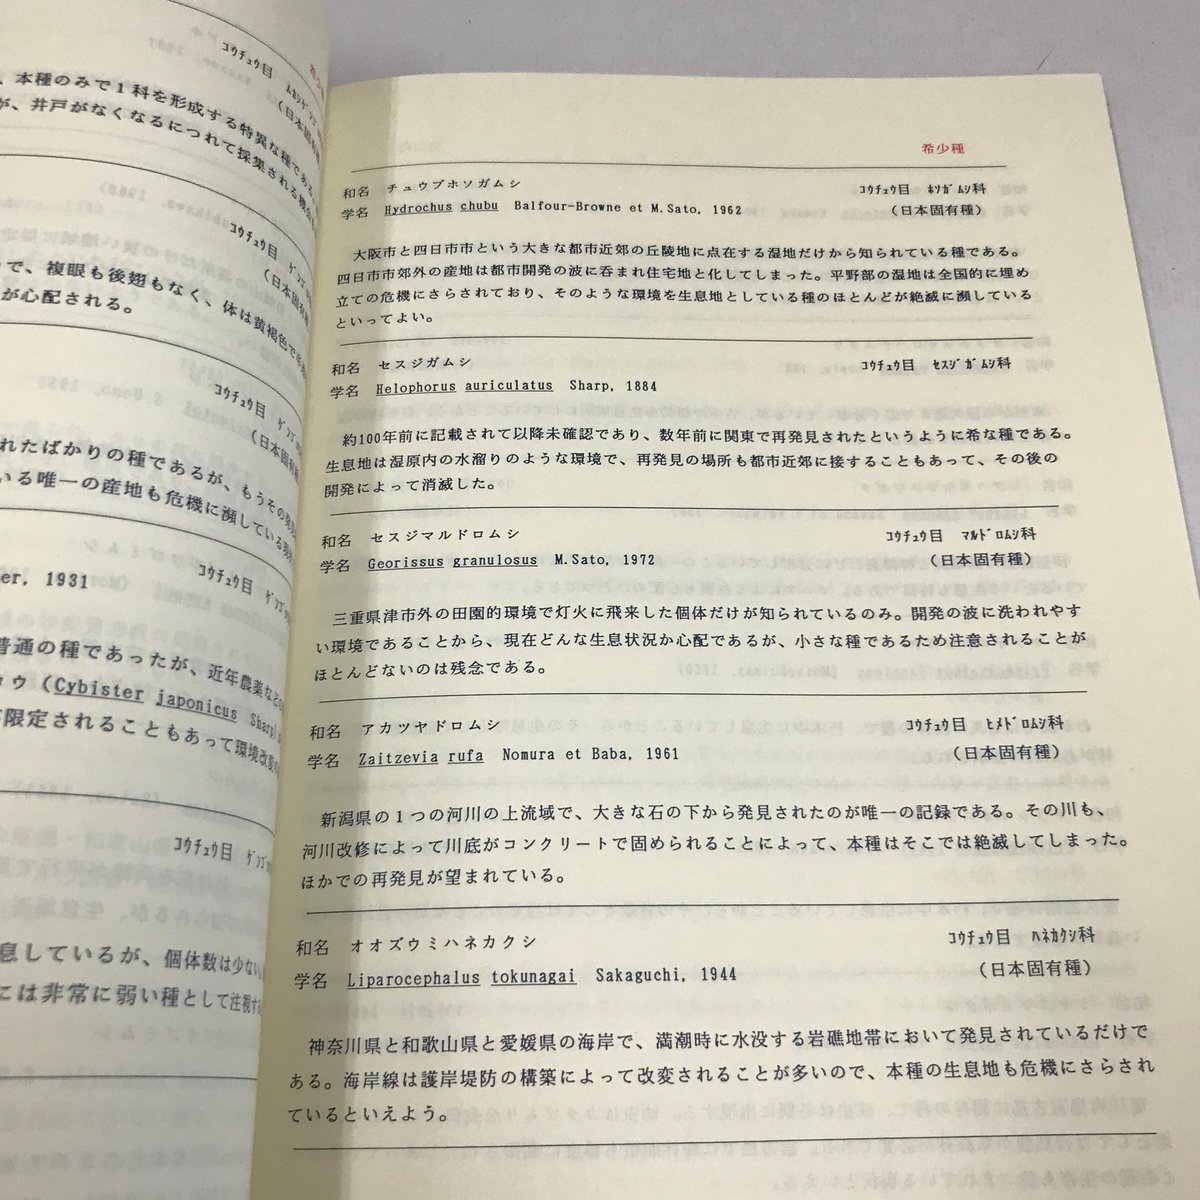 コウチュウ目
、本種のみで１科を形成する特異な種である。
が、井戸がなくなるにつれて採集される機会も
コウチュウ目
(日本固有種
で、複眼も後翅もなく、体は黄褐色で
が心配される。
コウチュウ目
(日本固有種
れたばかりの種であるが、もうその発見
いる唯一の産地も危機に瀕している
コウチュウ目
er, 1931
普通の種であったが、近年農薬など
ロウ (Cybister japonicus Sharp)
が限定されることもあって環境改変の
コウチュウ目
息しているが、個体数は少ない。
には非常に弱い種として注視する
希少種
和名　チュウブホソガムシ　コウチュウ目　ホソガムシ科
学名　Hydrochus chubu　Balfour-Browne et M.Sato, 1962　(日本固有種)
大阪市と四日市市という大きな都市近郊の丘陵地に点在する湿地だけから知られている種である。
四日市市郊外の産地は都市開発の波に呑まれ住宅地と化してしまった。平野部の湿地は全国的に埋め
立ての危機にさらされており、そのような環境を生息地としている種のほとんどが絶滅に瀕している
といってよい。
和名　セスジガムシ　コウチュウ目　セスジガムシ科
学名　Helophorus auriculatus　Sharp, 1884
約100年前に記載されて以降未確認であり、数年前に関東で再発見されたというように希な種である。
生息地は湿原内の水溜りのような環境で、再発見の場所も都市近郊に接することもあって、その後の
開発によって消滅した。
和名　セスジマルドロムシ　コウチュウ目　マルドロムシ科
学名　Georissus granulosus　M.Sato, 1972　(日本固有種)
三重県津市外の田園的環境で灯火に飛来した個体だけが知られているのみ。開発の波に洗われやす
い環境であることから、現在どんな生息状況か心配であるが、小さな種であるため注意されることが
ほとんどないのは残念である。
和名　アカツヤドロムシ　コウチュウ目　ヒメドロムシ科
学名　Zaitzevia rufa　Nomura et Baba, 1961　(日本固有種)
新潟県の１つの河川の上流域で、大きな石の下から発見されたのが唯一の記録である。その川も、
河川改修によって川底がコンクリートで固められることによって、本種はそこでは絶滅してしまった。
ほかでの再発見が望まれている。
和名　オオズウミハネカクシ　コウチュウ目　ハネカクシ科
学名　Liparocephalus tokunagai　Sakaguchi, 1944　(日本固有種)
神奈川県と和歌山県と愛媛県の海岸で、満潮時に水没する岩礁地帯において発見されているだけで
ある。海岸線は護岸堤防の構築によって改変されることが多いので、本種の生息地も危機にさらされ
ているといえよう。